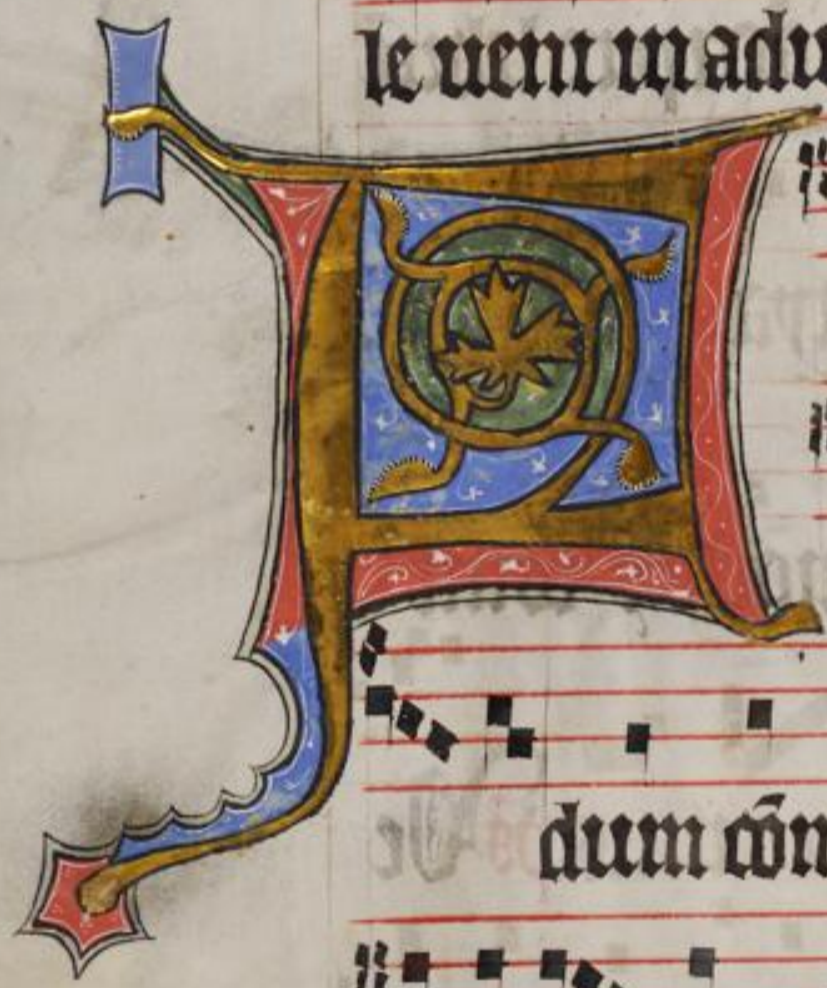 le ueni in adu
dum cōn